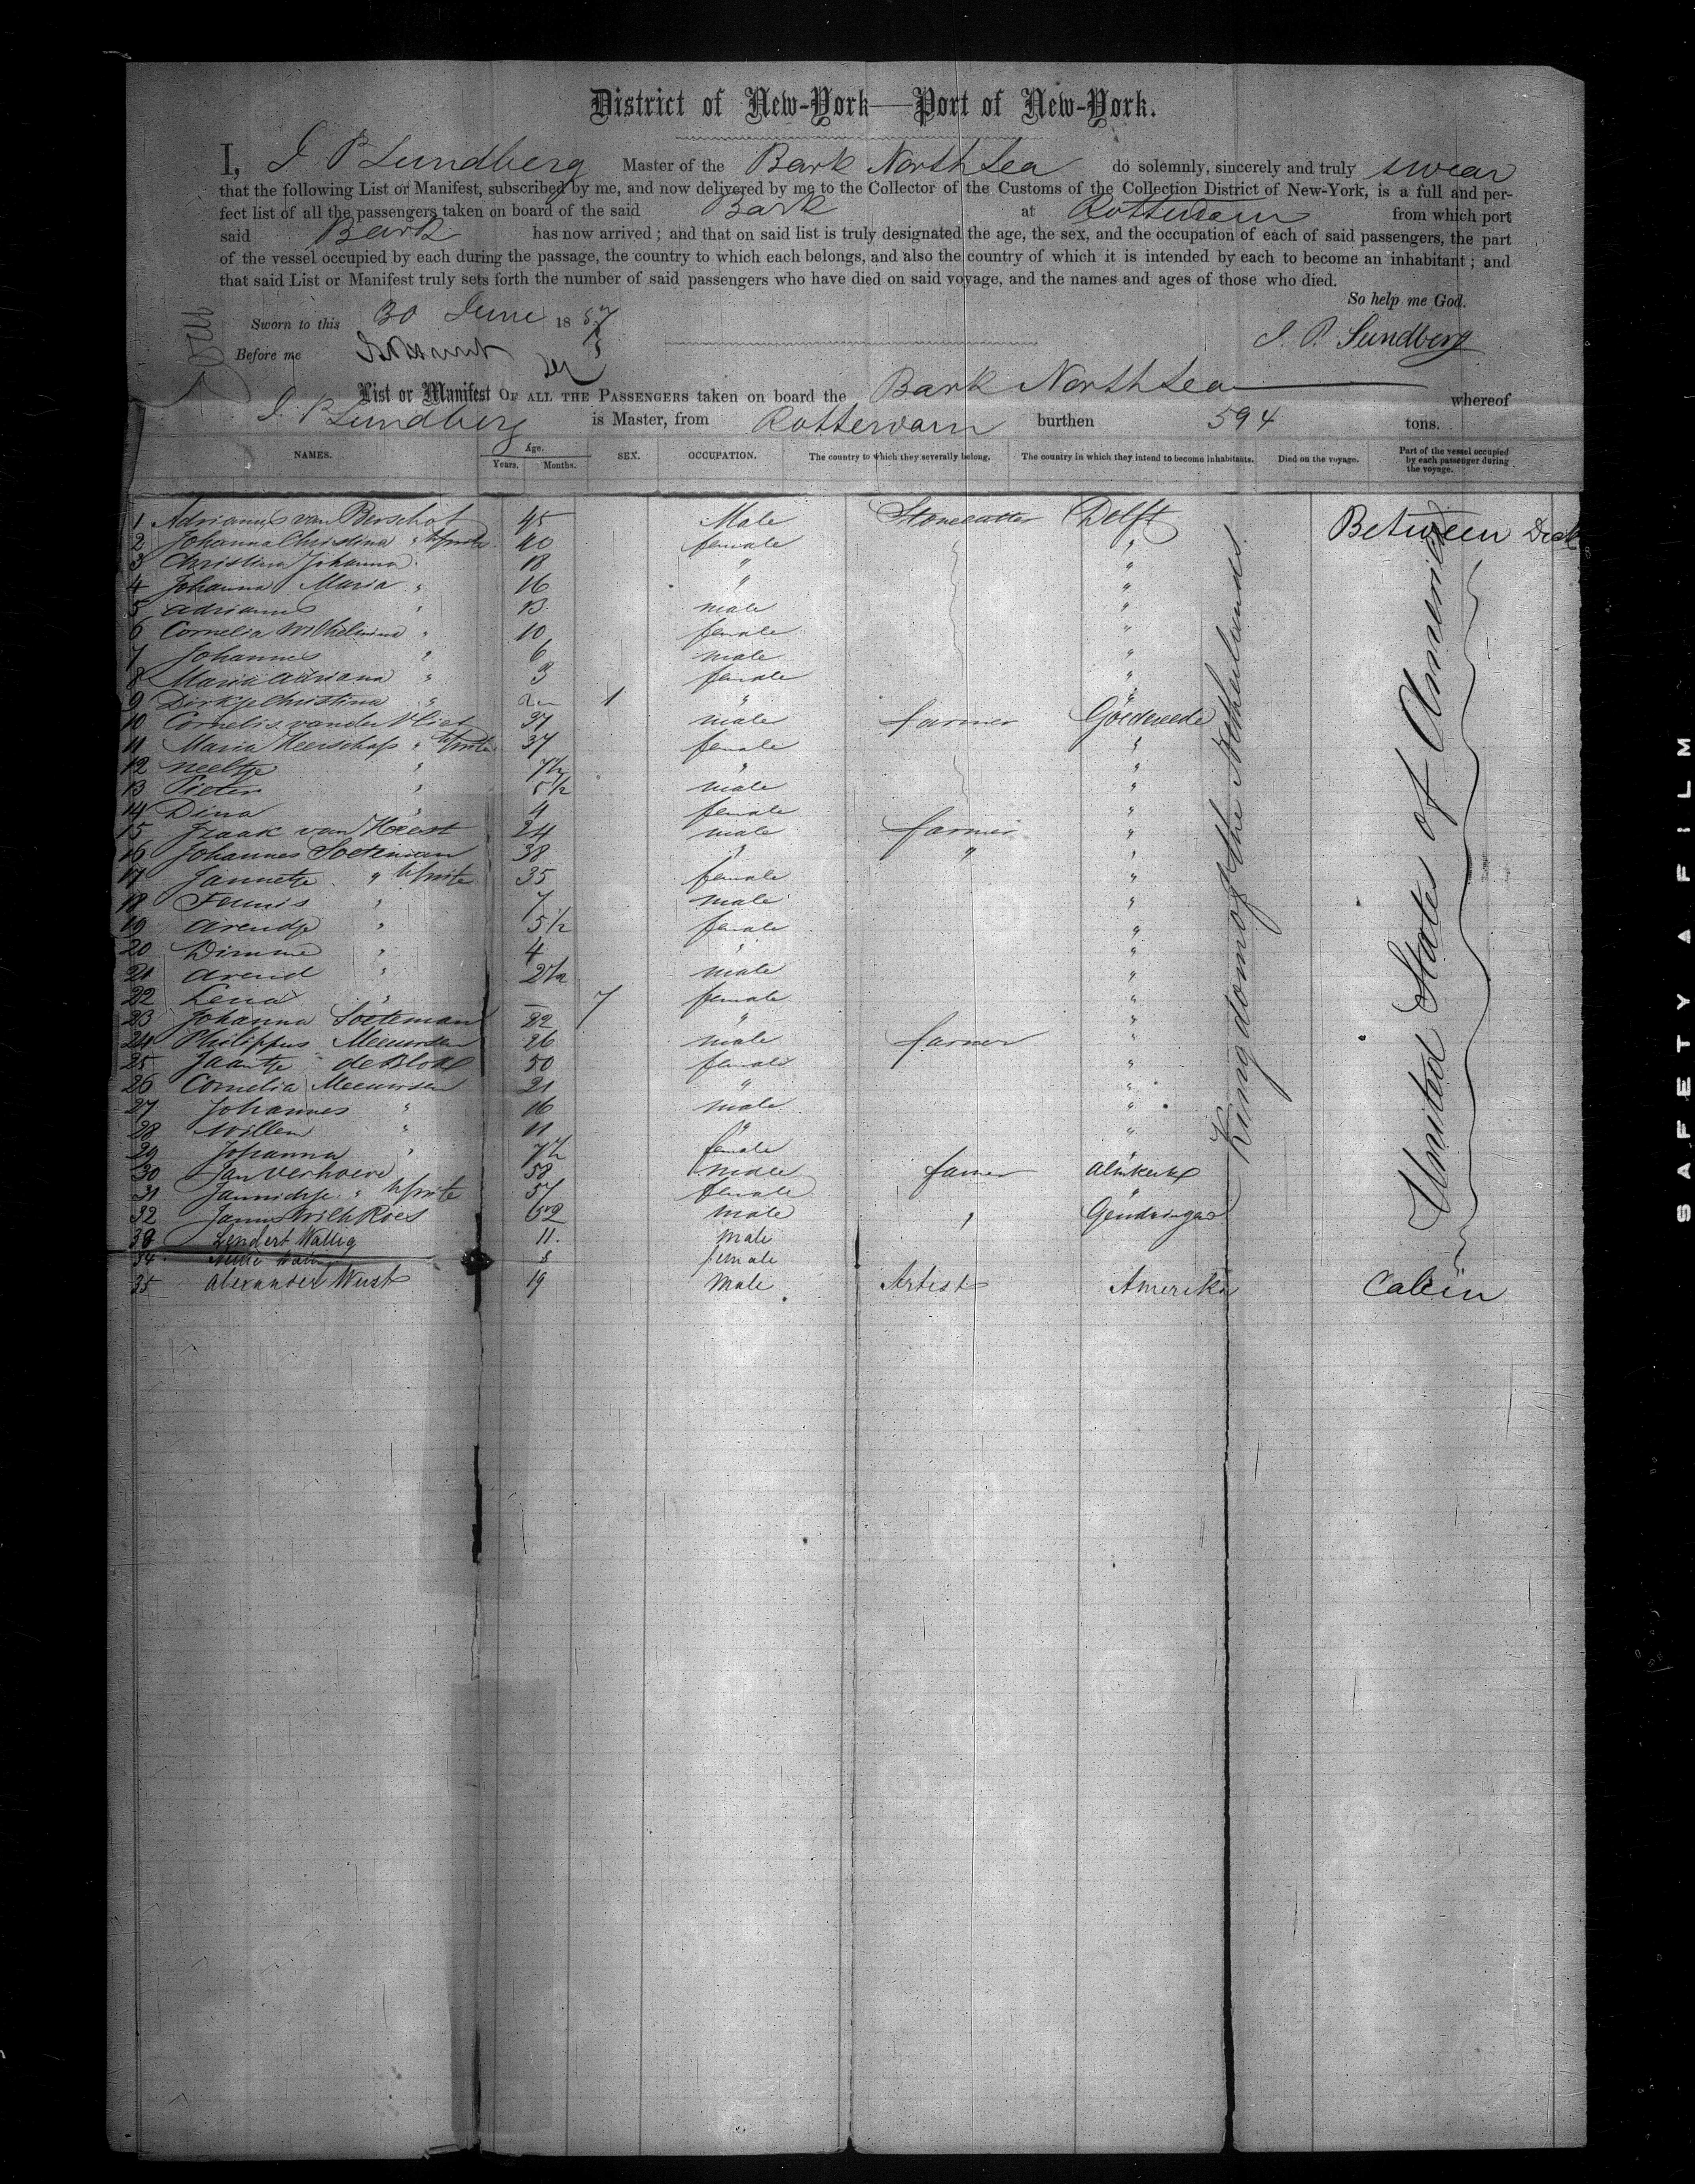 District of New-York—Port of New-York.
I, J P Lundberg Master of the Bark North Sea do solemnly, sincerely and truly swear
that the following List or Manifest, subscribed by me, and now delivered by me to the Collector of the Customs of the Collection District of New-York, is a full and per-
fect list of all the passengers taken on board of the said Bark at Rotterdam from which port
said Bark has now arrived; and that on said list is truly designated the age, the sex, and the occupation of each of said passengers, the part
of the vessel occupied by each during the passage, the country to which each belongs, and also the country of which it is intended by each to become an inhabitant; and
that said List or Manifest truly sets forth the number of said passengers who have died on said voyage, and the names and ages of those who died.
So help me God.
Sworn to this 30 June 1857
J. P. Lundberg
Before me
List or Manifest OF ALL THE PASSENGERS taken on board the Bark North Sea whereof
J P Lundberg is Master, from Rotterdam burthen 594 tons.
NAMES. Age. Years. Months. SEX. OCCUPATION. The country to which they severally belong. The country in which they intend to become inhabitants. Died on the voyage. Part of the vessel occupied by each passenger during the voyage.
1 Adrianus van Berschot 45 Male Stonecutter Delft Between Deck
2 Johanna Christina " 40 female "
3 Christina Johanna 18 " "
4 Johanna Maria " 16 " "
5 Adrianus " 13 male "
6 Cornelia Wilhelmina " 10 female "
7 Johannes " 6 male "
8 Maria Adriana " 3 female "
9 Dirkje Christina " 1 " "
10 Cornelis van der Vliet 37 male farmer Goedereede
11 Maria Heerschap " 37 female "
12 Neeltje " 7½ " "
13 Pieter " 5½ male "
14 Dina " 4 female "
15 Izaak van Heest 24 male farmer "
16 Johannes Soeteman 38 " " "
17 Jannetje " 35 female "
18 Teunis " 7 male "
19 Arendje " 5½ female "
20 " 4 " "
21 Arend " 2½ male "
22 Lena " — 7 female "
23 Johanna Soeteman 22 " "
24 Philippus Meeuwsen 26 male farmer "
25 Jaantje de Blok 50 female "
26 Cornelia Meeuwsen 21 " "
27 Johannes " 16 male "
28 Willem " 11 " "
29 Johanna " 7½ female "
30 Jan Verhoeve 58 male farmer Almkerk
31 Jannichje " 57 female "
32 Janus Wilh Roes 52 male " Gendringen
33 Lendert Wallig 11. male
34 Wallig 8 female
35 Alexander Wust 19 Male Artist Amerika Cabin
Kingdom of the Netherlands
United States of America
SAFETY A FILM